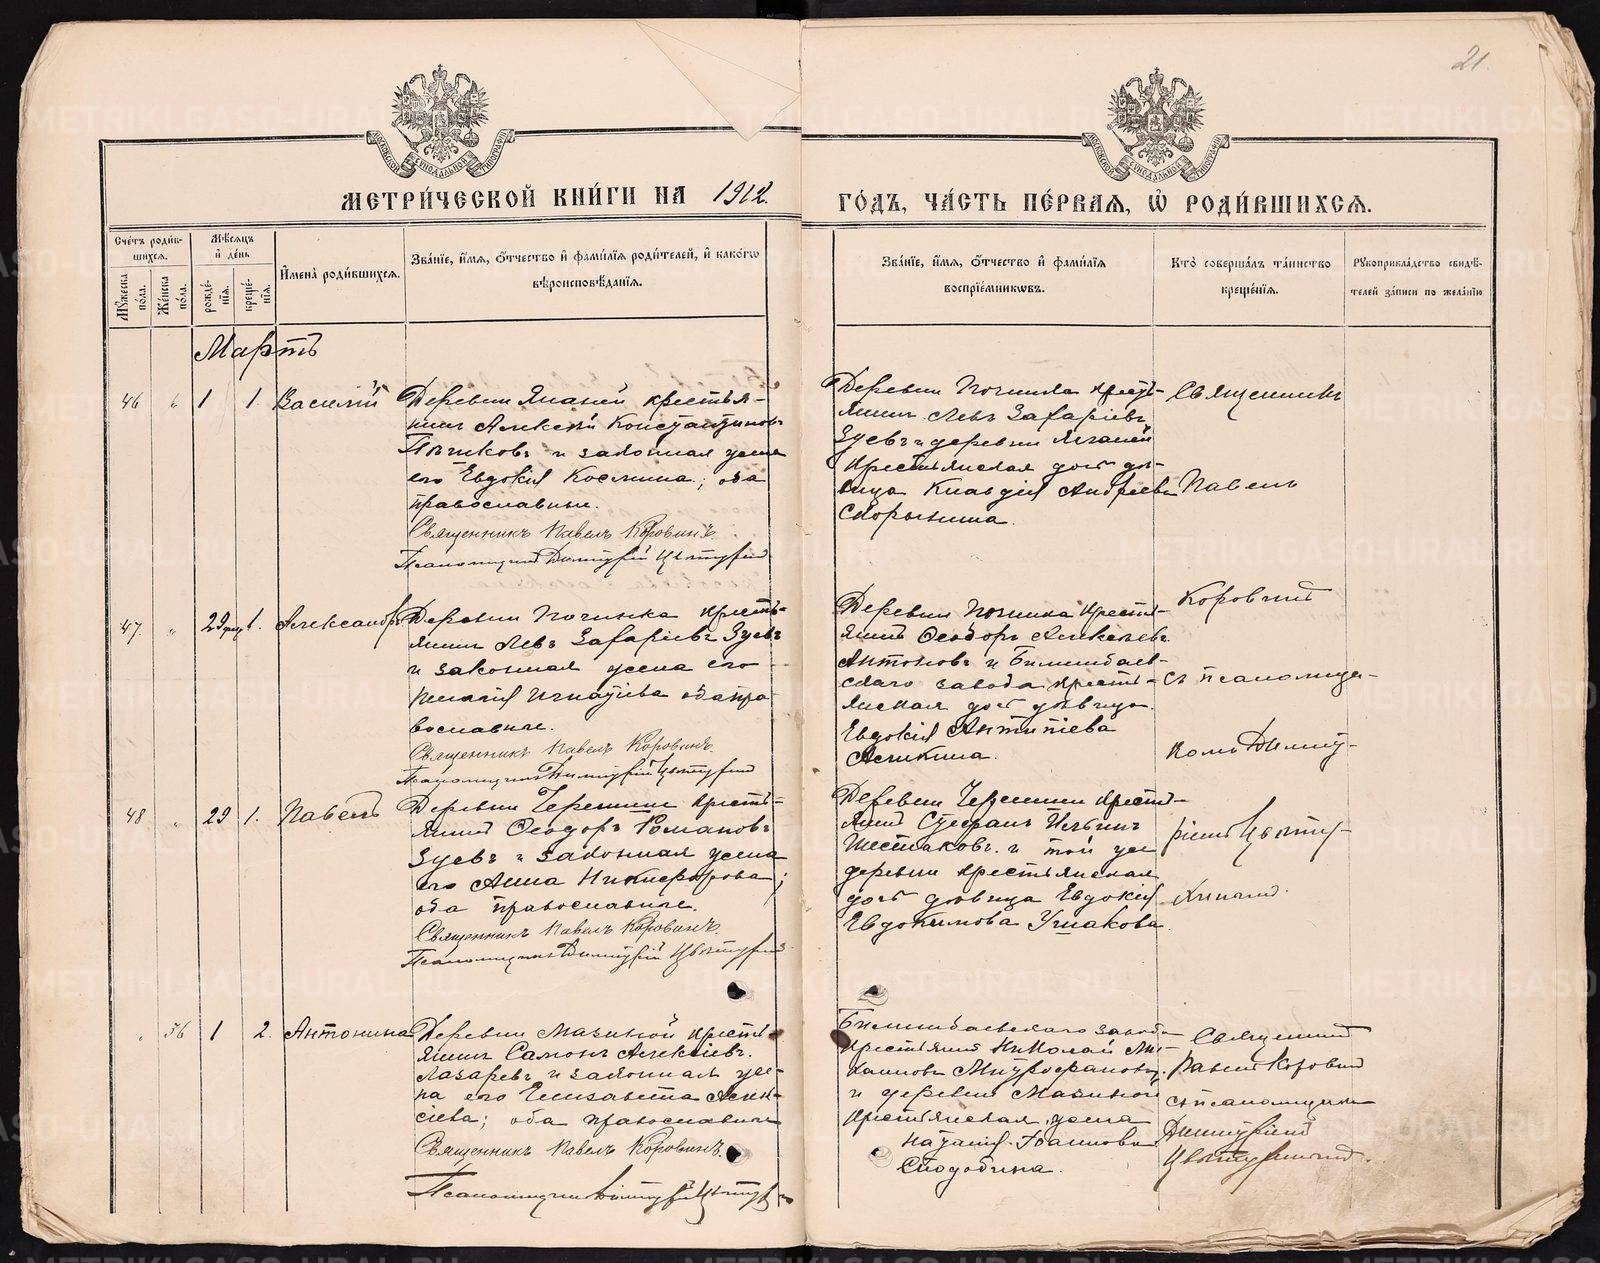 21.
МОСКОВСКОЙ СѴНОДАЛЬНОЙ ТИПОГРАФІИ
МОСКОВСКОЙ СѴНОДАЛЬНОЙ ТИПОГРАФІИ
МЕТРИ́ЧЕСКОЙ КНИ́ГИ НА 1912.
ГО́ДЪ, ЧА́СТЬ ПЕ́РВАѦ, Ѽ РОДИ́ВШИХСѦ.
Сче́тъ роди́в-
шихсѧ.
Мꙋ́жеска по́ла.
Же́нска по́ла.
Мѣ́сѧцъ
и҆ де́нь
рожде́-
нїѧ.
креще́-
нїѧ.
И҆мена̀ роди́вшихсѧ.
Зва́нїе, и҆́мѧ, ѻ҆́тчество и҆ фами́лїѧ роди́телей, и҆ како́гѡ
вѣроисповѣ́данїѧ.
Зва́нїе, и҆́мѧ, ѻ҆́тчество и҆ фами́лїѧ
воспрїе́мникѡвъ.
Кто̀ соверша́лъ та́инство
креще́нїѧ.
Рꙋкоприкла́дство свидѣ́-
телей за́писи по жела́нїю.
Мартъ
46 " 1 1. Василій
Деревни Яланей крестья-
нинъ Алексѣй Константиновъ
и законная жена
его Евдокія Космина; оба
православные.
Священникъ Павелъ Коровинъ.
Псаломщикъ Димитрій
Деревни Починка кресть-
янинъ Левъ Захаріевъ
Зуевъ и деревни
крестьянская дочь дѣ-
вица Клавдія Андреева
Скорынина.
Священникъ
Павелъ
47. " 29 1. Александръ
Деревни Починка кресть-
янинъ Левъ Захаріевъ Зуевъ
и законная жена его
Игнатіева оба пра-
вославные.
Священникъ Павелъ Коровинъ.
Псаломщикъ Димитрій
Деревни Починка кресть-
янинъ Ѳеодоръ Алексѣевъ
Антоновъ и Билимбаев-
скаго завода кресть-
янская дочь дѣвица
Евдокія Антипіева
Аликина.
Коровинъ
съ псаломщи-
комъ Димит-
48 " 29 1. Павелъ
Деревни Черемши кресть-
янинъ Ѳеодоръ Романовъ
Зуевъ и законная жена
его Анна Никифорова;
оба православные.
Священникъ Павелъ Коровинъ.
Псаломщикъ Димитрій
Деревни Черемши кресть-
янинъ Стефанъ Ильинъ
Шестаковъ и той же
деревни крестьянская
дочь дѣвица Евдокія
Евдокимова Ушакова.
ріемъ
" 56 1 2. Антонина
Деревни Мазиной кресть-
янинъ Самсонъ Алексіевъ
Лазаревъ и законная же-
на его Елизавета Алек-
сіева; оба православные
Священникъ Павелъ Коровинъ.
Псаломщикъ Димитрій
Билимбаевскаго завода
крестьянинъ Николай Ми-
хаиловъ Митрофановъ
и деревни Мазиной
крестьянская жена
Наталія Іоаннова
Сподобина.
Священникъ
Павелъ Коровинъ
съ псаломщикомъ
Димитріемъ
METRIKI.GASO-URAL.RU